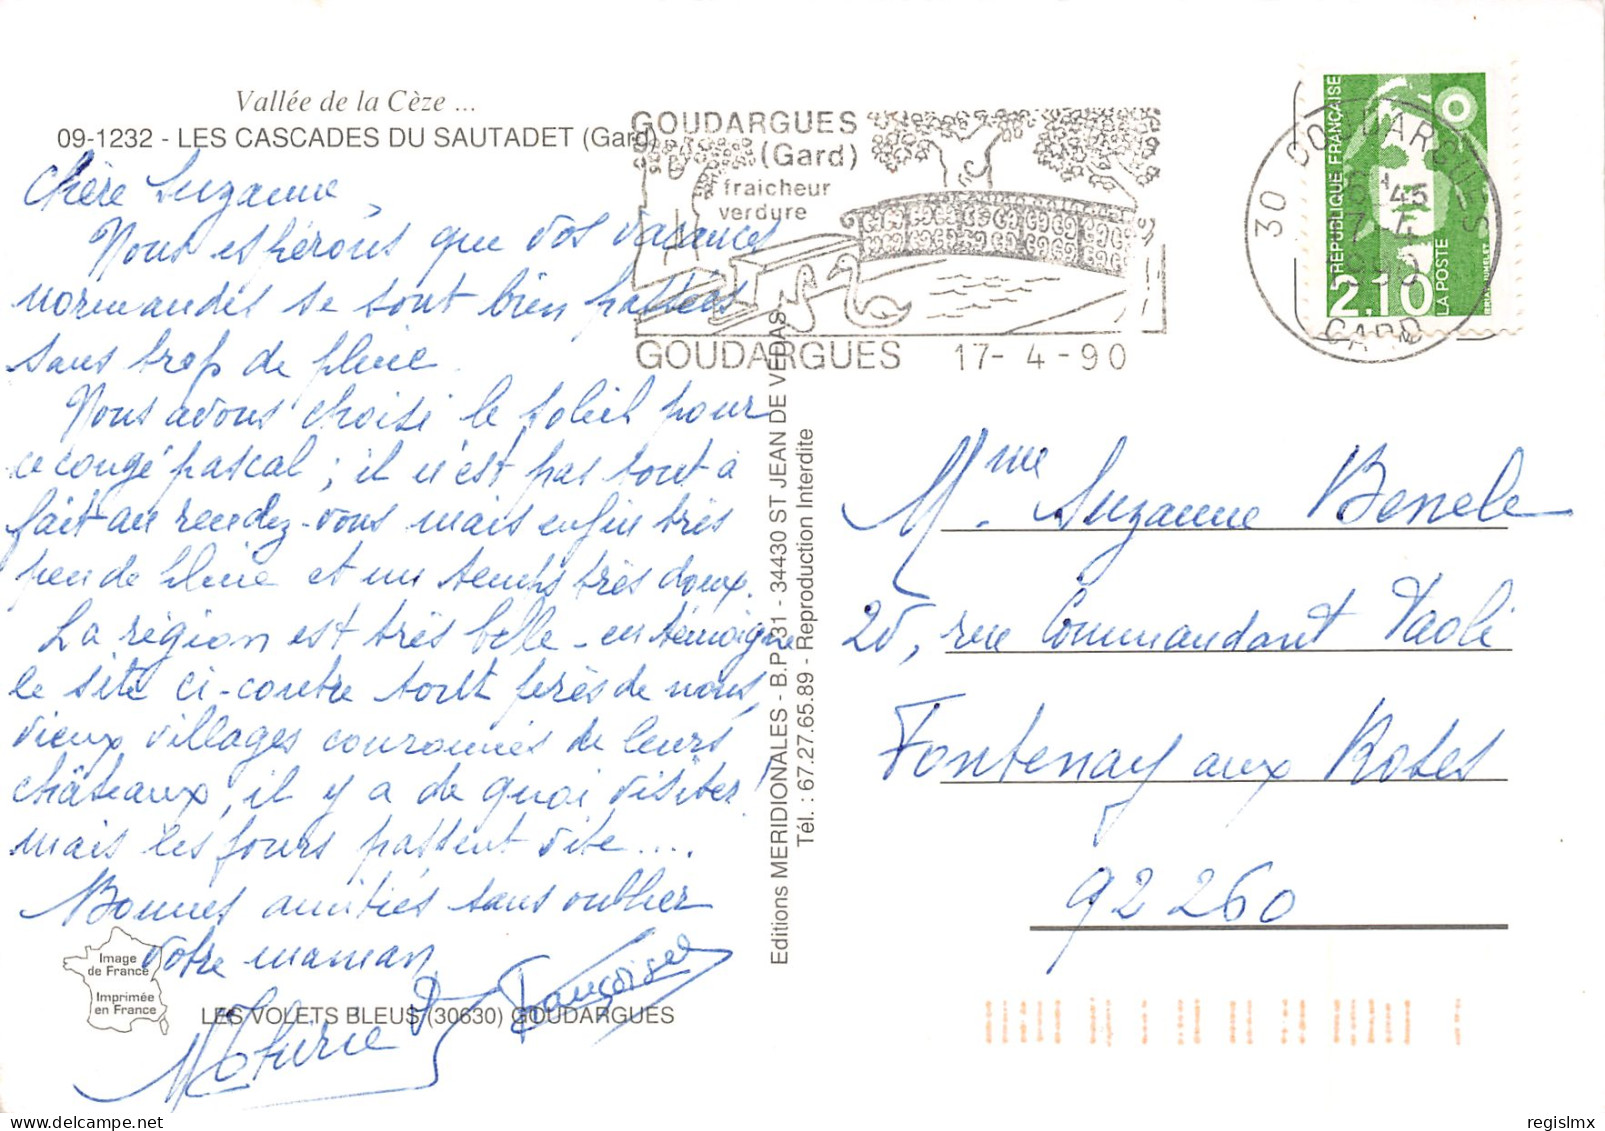 Vallée de la Cèze ...
09-1232 - LES CASCADES DU SAUTADET (Gard)
Chère Suzanne,
Nous espérons que vos vacances
normandes se sont bien passées
sans trop de pluie.
Nous avons choisi le soleil pour
ce congé pascal ; il n'est pas tout à
fait au rendez-vous mais enfin très
peu de pluie et un temps très doux.
La région est très belle - en témoigne
le site ci-contre tout près de nous,
vieux villages couronnés de leurs
châteaux, il y a de quoi visiter !
mais les jours passent vite ....
Bonnes amitiés sans oublier
votre maman
Françoise
Image
de France
Imprimée
en France
LES VOLETS BLEUS (30630) GOUDARGUES
Editions MERIDIONALES - B.P. 31 - 34430 ST JEAN DE VEDAS
Tél. : 67.27.65.89 - Reproduction Interdite
GOUDARGUES
(Gard)
fraicheur
verdure
GOUDARGUES 17-4-90
30 GOUDARGUES
45
GARD
REPUBLIQUE FRANÇAISE
2.10
LA POSTE
Mme Suzanne Benele
20, rue Commandant Paoli
Fontenay aux Roses
92260
regislmx